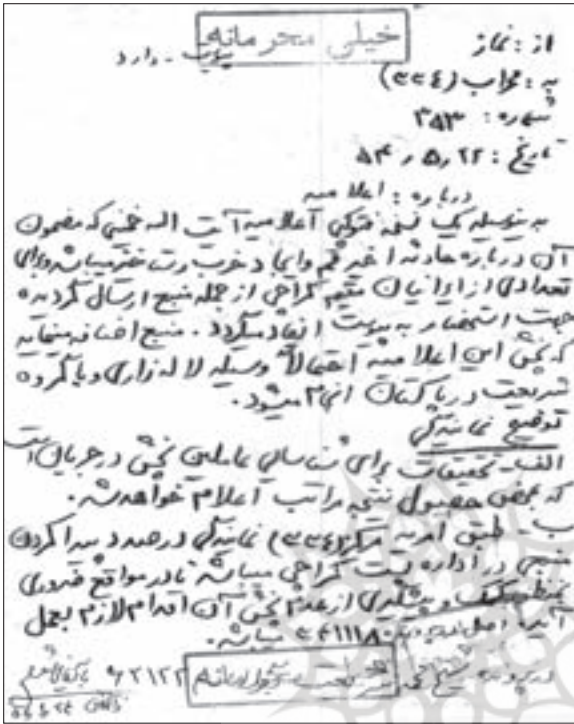 خیلی محرمانه
از : نماز
به : محراب (۳۳۴)
شماره : ۳۵۳
تاریخ : ۲۲ ر ۵ ر ۵۴
پیوست - دارد
درباره : اعلامیه
به پیوسته یک نسخه فتوکپی اعلامیه آیت اله خمینی که مضمون
آن درباره حادثه اخیر قم و ایجاد حزب رستاخیز میباشد و برای
تعدادی از ایرانیان مقیم کراچی از جمله منبع ارسال گردیده
جهت استحضار به پیوست انفاد میگردد . منبع اضافه مینماید
که پخش این اعلامیه احتمالاً وسیله لاله زاری و یا گروه
شریعت در پاکستان انجام میشود .
توضیح نمایندگی
الف - تحقیقات برای شناسائی عاملین پخش در جریان است
که بمحض حصول نتیجه مراتب اعلام خواهد شد .
ب - طبق امریه مرکز (۳۳۴) نمایندگی درصدد پیدا کردن
منبعی در اداره پست کراچی میباشد تا در مواقع ضروری
و پیشگیری از عدم پخش آن اقدام لازم بعمل
آید . اصل در پرونده ۳۴۱۱۱۸۰ میباشد .
در پرونده